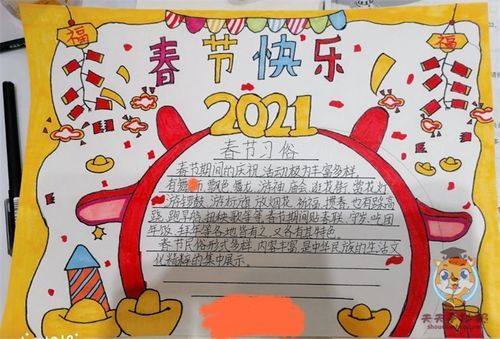 福
福
春节快乐
2021
春节习俗
春节期间的庆祝活动极为丰富多样。
有舞 狮 飘色 舞龙 游神 庙会 逛花街 赏花灯
游锣鼓 游标旗 放烟花 祈福 掼春 也有踩高
跷 跑旱船 扭秧歌等等 春节期间贴春联 守岁 吃团
年饭 拜年等各地皆有之 又各有其特色。
春节民俗形式多样、内容丰富,是中华民族的生活文
化精粹的集中展示。